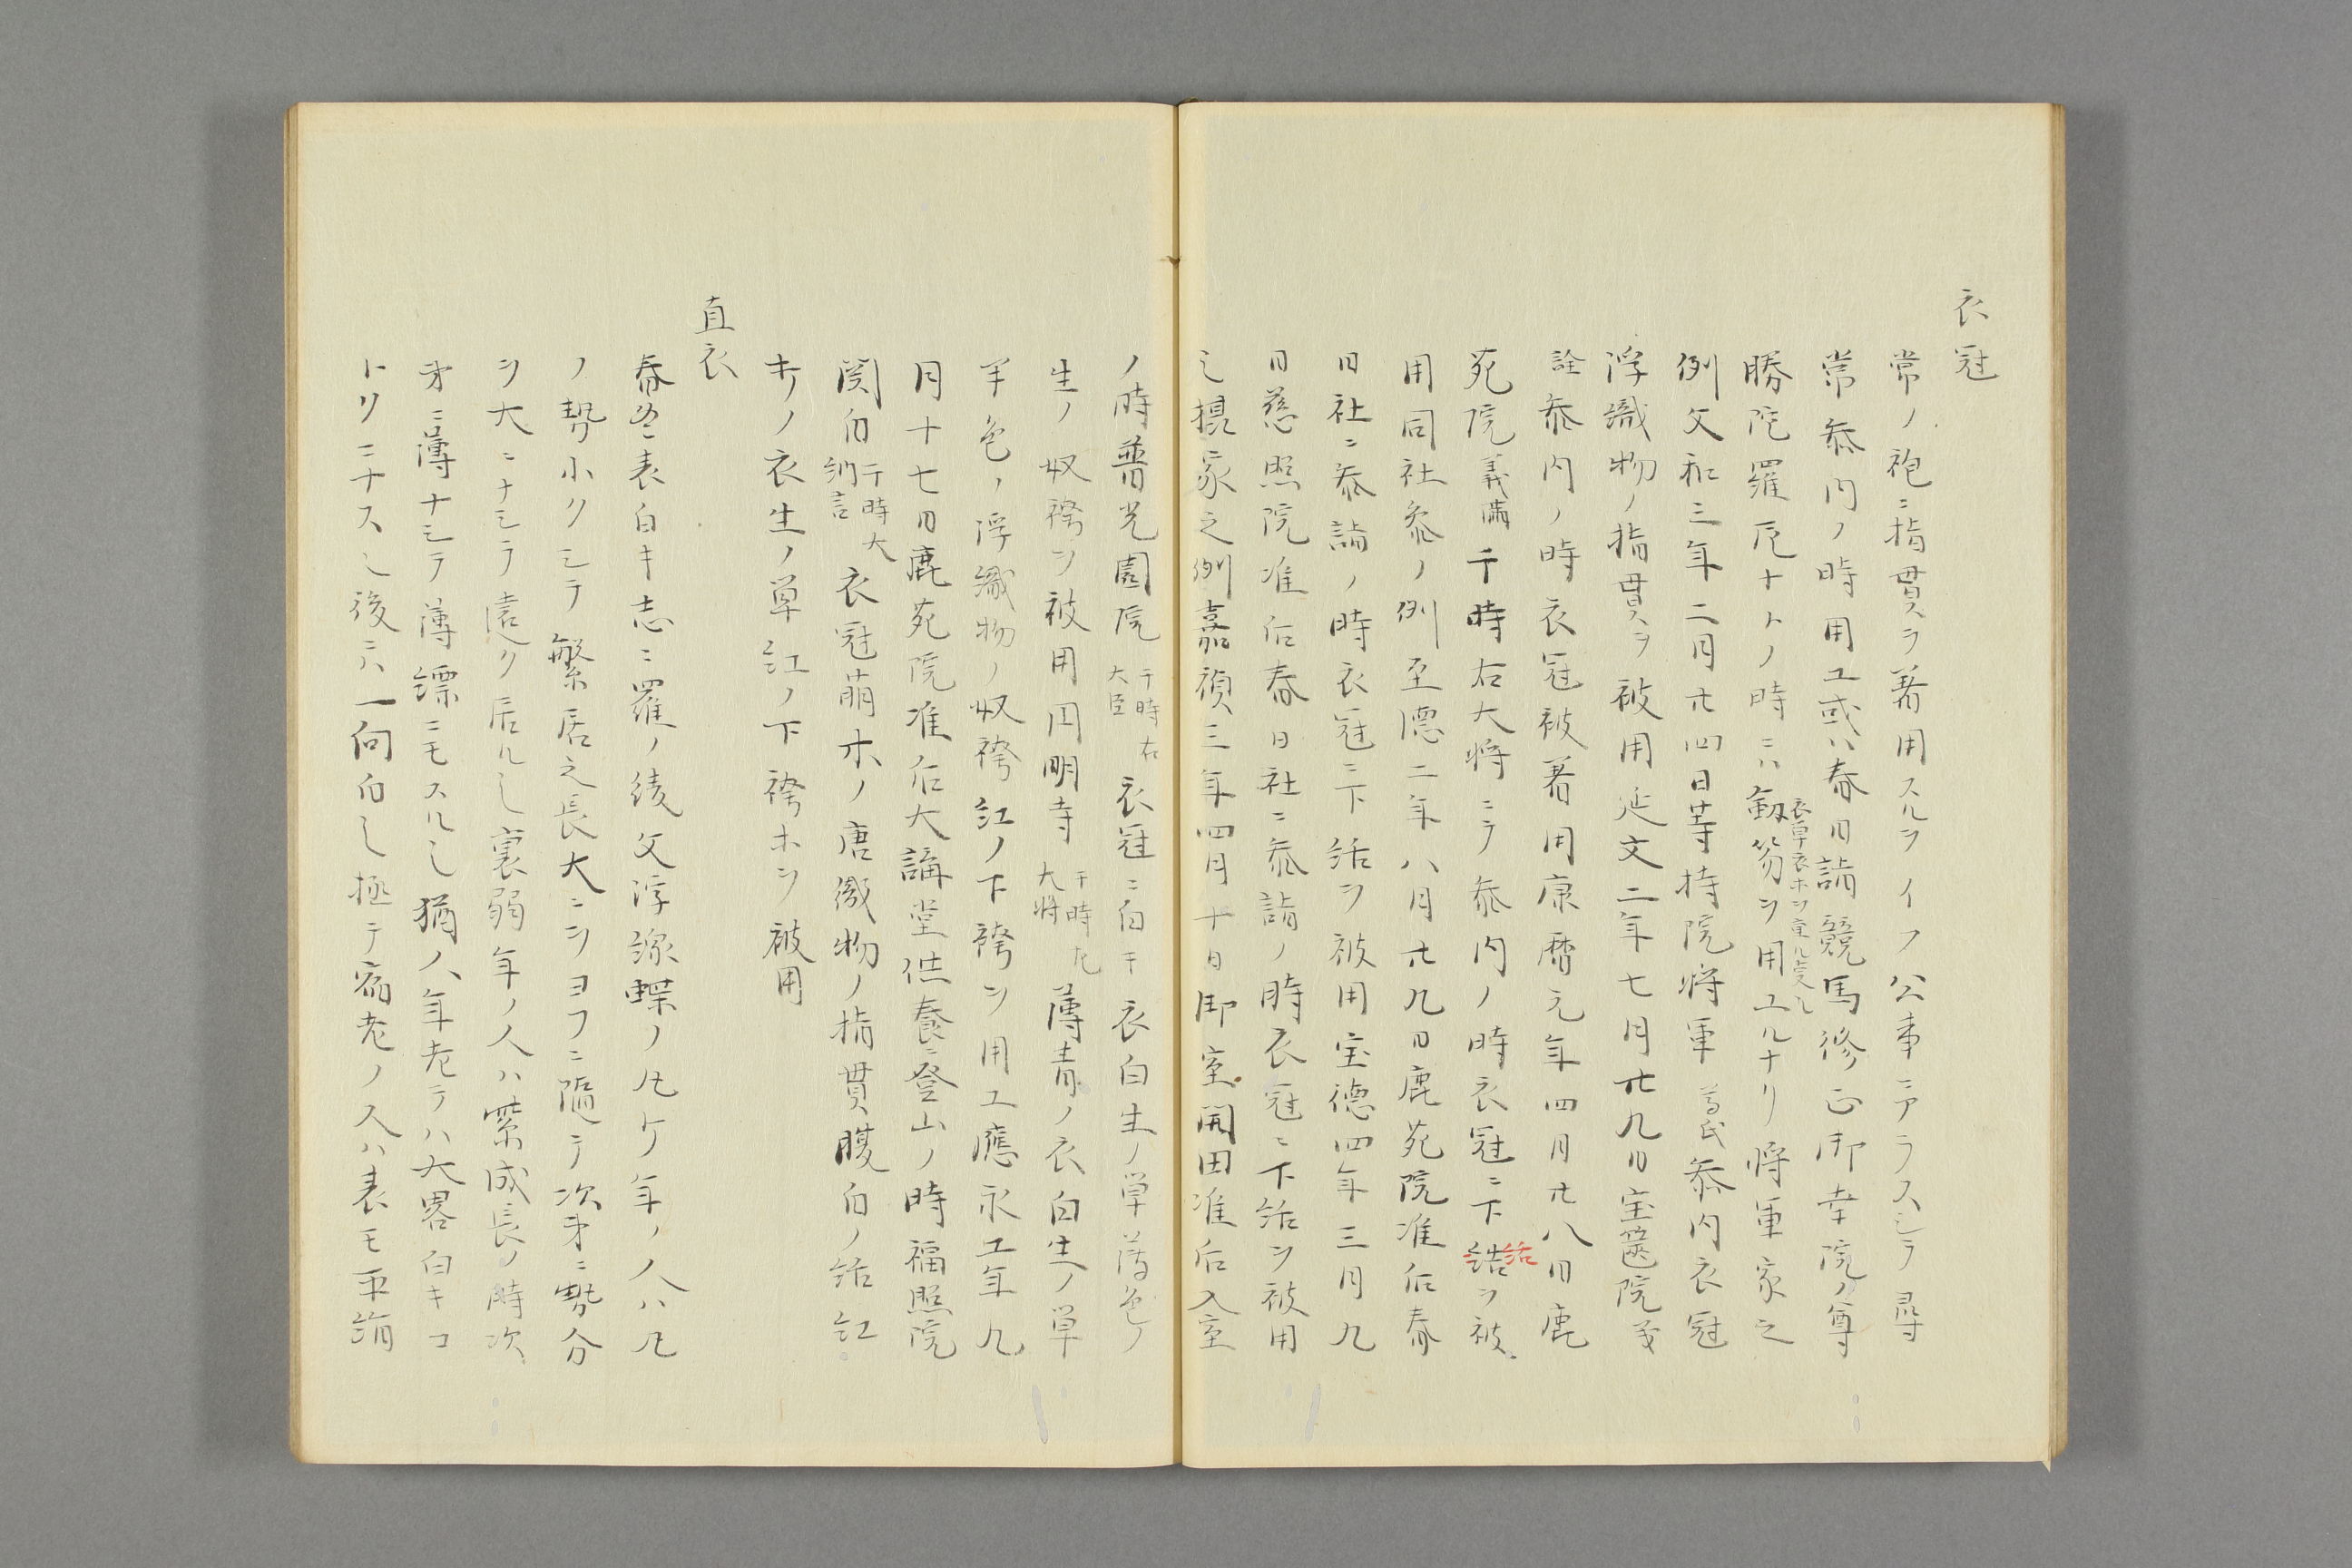 衣冠
常ノ袍ニ指貫ヲ著用スルヲイフ公事ニアラスシテ尋
常参内ノ時用エ或ハ春日詣競馬修正御幸院ノ尊
勝陀羅尼ナトノ時ニハ劔笏ヲ用エルナリ将軍家之
衣単衣ホヲ
例文和三年二月廿四日等持院将軍尊氏参内衣冠
浮織物ノ指貫ヲ被用延文二年七月廿九日宝篋院義
詮参内ノ時衣冠被著用康暦元年四月廿八日鹿
苑院義満于時右大将ニテ参内ノ時衣冠ニ下結ヲ被
括
用同社参ノ例至徳二年八月廿九日鹿苑院准后春
日社ニ参詣ノ時衣冠ニ下括ヲ被用宝徳四年三月九
日慈照院准后春日社ニ参詣ノ時衣冠ニ下括ヲ被用
シ摂家之例嘉禎三年四月十日御室開田准后入室
ノ時普光園院于時右大臣衣冠ニ白キ衣白生ノ単薄色ノ
生ノ奴袴ヲ被用円明寺于時左大将薄青ノ衣白生ノ単
半色ノ浮織物ノ奴袴紅ノ下袴ヲ用エ應永工年九
月十七日鹿苑院准后大講堂供養ニ登山ノ時福照院
関白于時大納言衣冠萠木ノ唐織物ノ指貫腹白ノ括紅
キノ衣生ノ単紅ノ下袴ホヲ被用
直衣
春冬ニ表白キ志ニ羅ノ綾文浮線蝶ノ凡ケ年ノ人ハ凡
ノ勢小クシテ繁居之長大ニヲヨフニ随テ次第ニ勢分
ヲ大ニナシテ遠ク居ルシ裏弱年ノ人ハ紫成長ノ時次
第ニ薄ナシテ薄縹ニモスルシ猶ノ八年老テハ大畧白キコ
トリニナスシ後ニハ一向白シ極テ宿老ノ人ハ表モ平絹